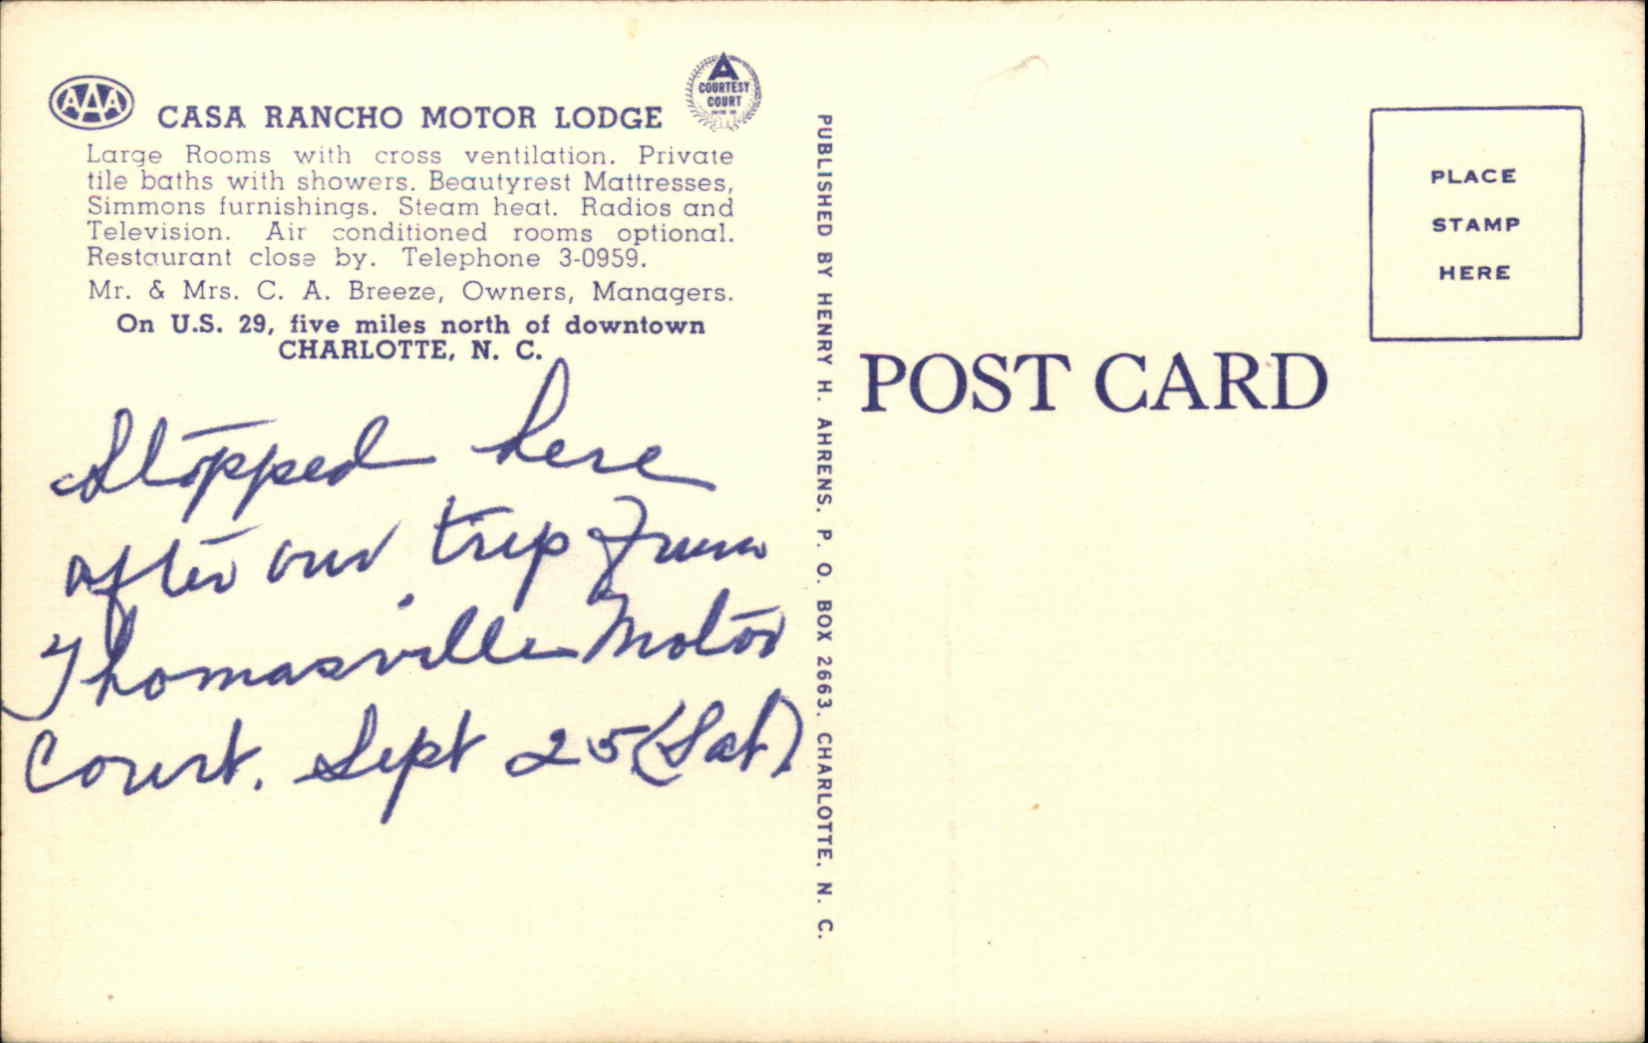 AAA
CASA RANCHO MOTOR LODGE
A
COURTESY
COURT
Large Rooms with cross ventilation. Private
tile baths with showers. Beautyrest Mattresses,
Simmons furnishings. Steam heat. Radios and
Television. Air conditioned rooms optional.
Restaurant close by. Telephone 3-0959.
Mr. & Mrs. C. A. Breeze, Owners, Managers.
On U.S. 29, five miles north of downtown
CHARLOTTE, N. C.
Stopped here
after our trip from
Thomasville Motor
Court. Sept 25 (Sat)
PUBLISHED BY HENRY H. AHRENS. P. O. BOX 2663. CHARLOTTE. N. C.
PLACE
STAMP
HERE
POST CARD